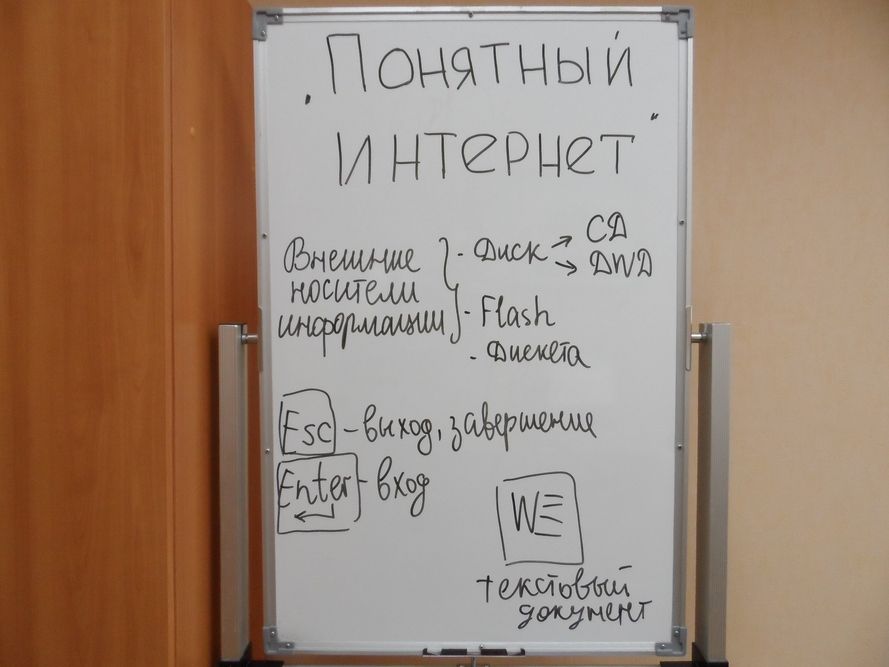 „Понятный
интернет"
Внешние
носители
информации
- Диск → CD
→ DWD
- Flash
- Дискета
Esc - выход, завершение
Enter - вход
W
текстовый
документ